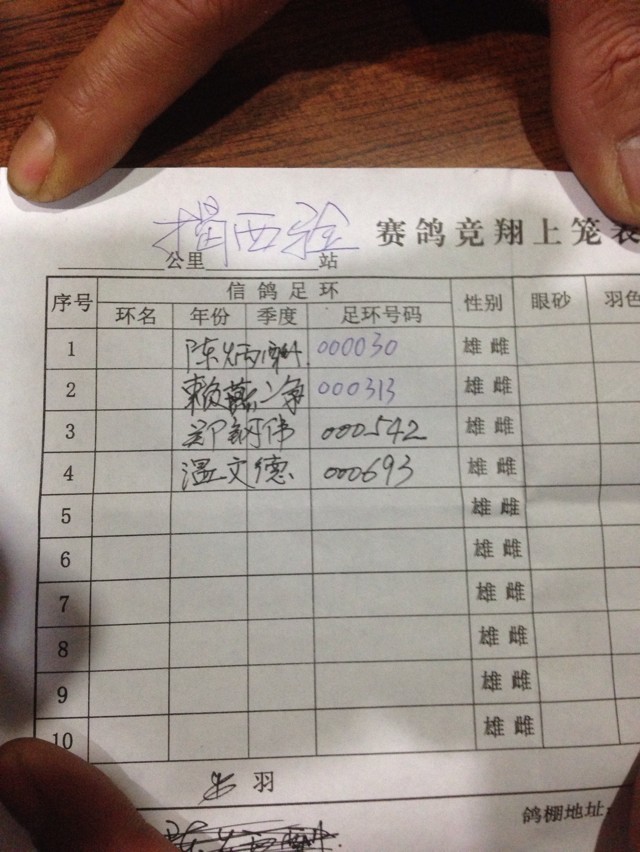 揭西 赛鸽竞翔上笼表
公里 站
序号 信鸽足环 性别 眼砂 羽色
环名 年份 季度 足环号码
1 陈炳 000030 雄 雌
2 赖 000313 雄 雌
3 郑 伟 000542 雄 雌
4 温文德 000693 雄 雌
5 雄 雌
6 雄 雌
7 雄 雌
8 雄 雌
9 雄 雌
10 雄 雌
羽
鸽棚地址